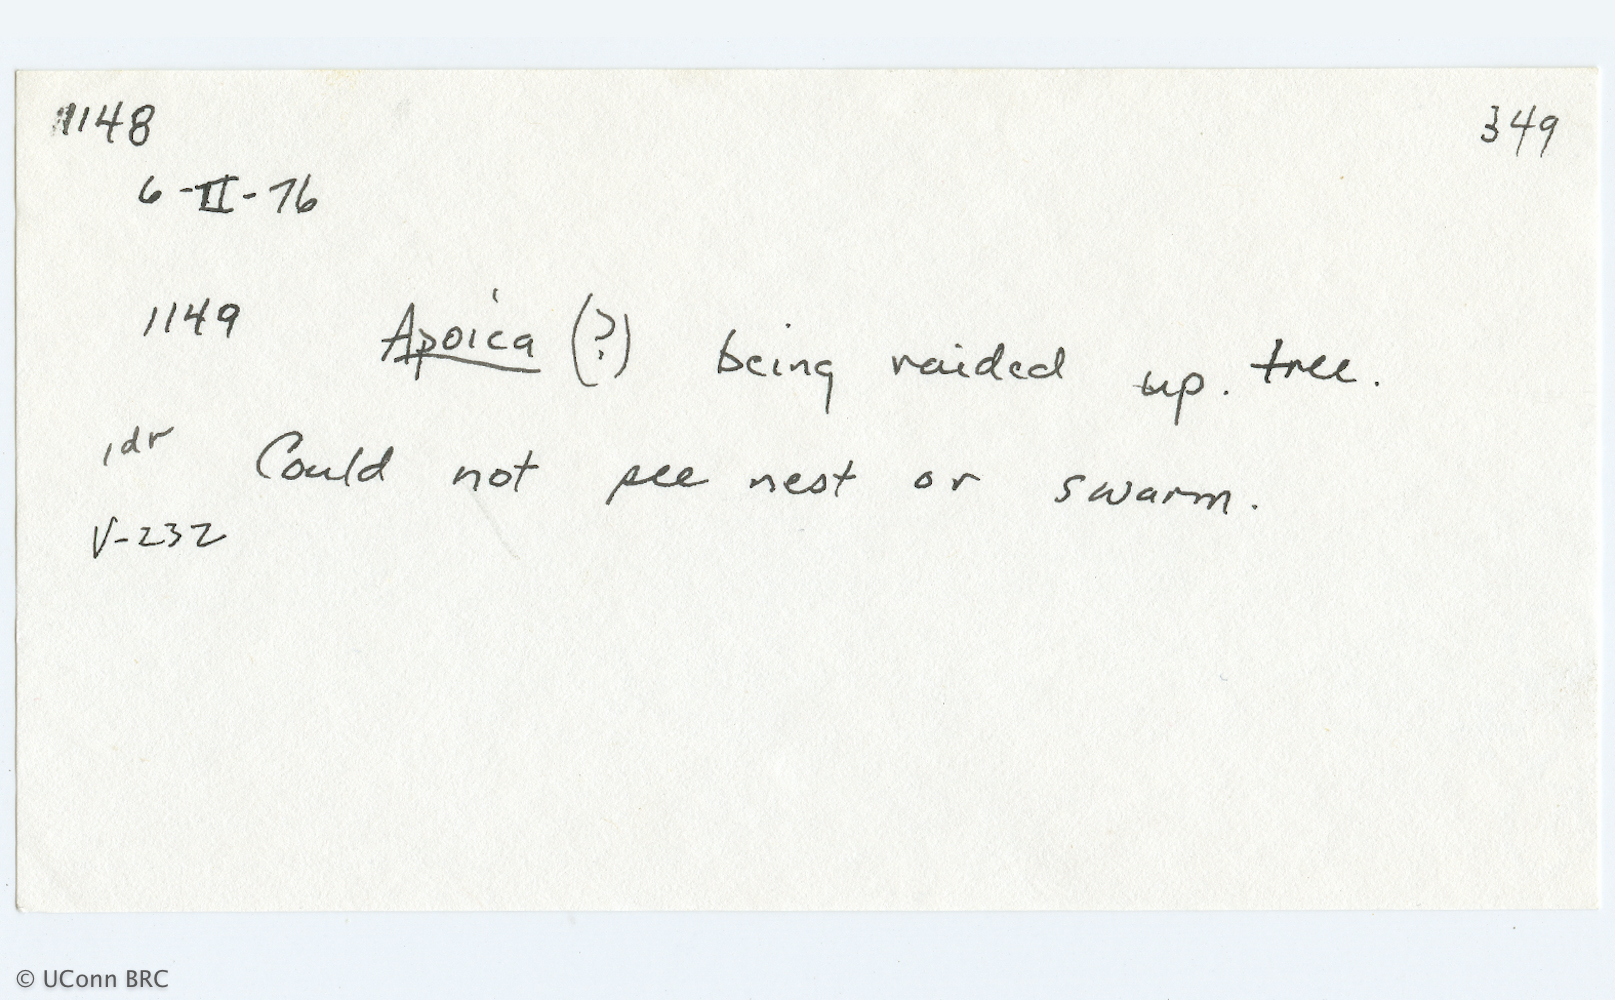 1148 349
6-II-76
1149 Apoica (?) being raided up. tree.
1dr Could not see nest or swarm.
V-232
© UConn BRC